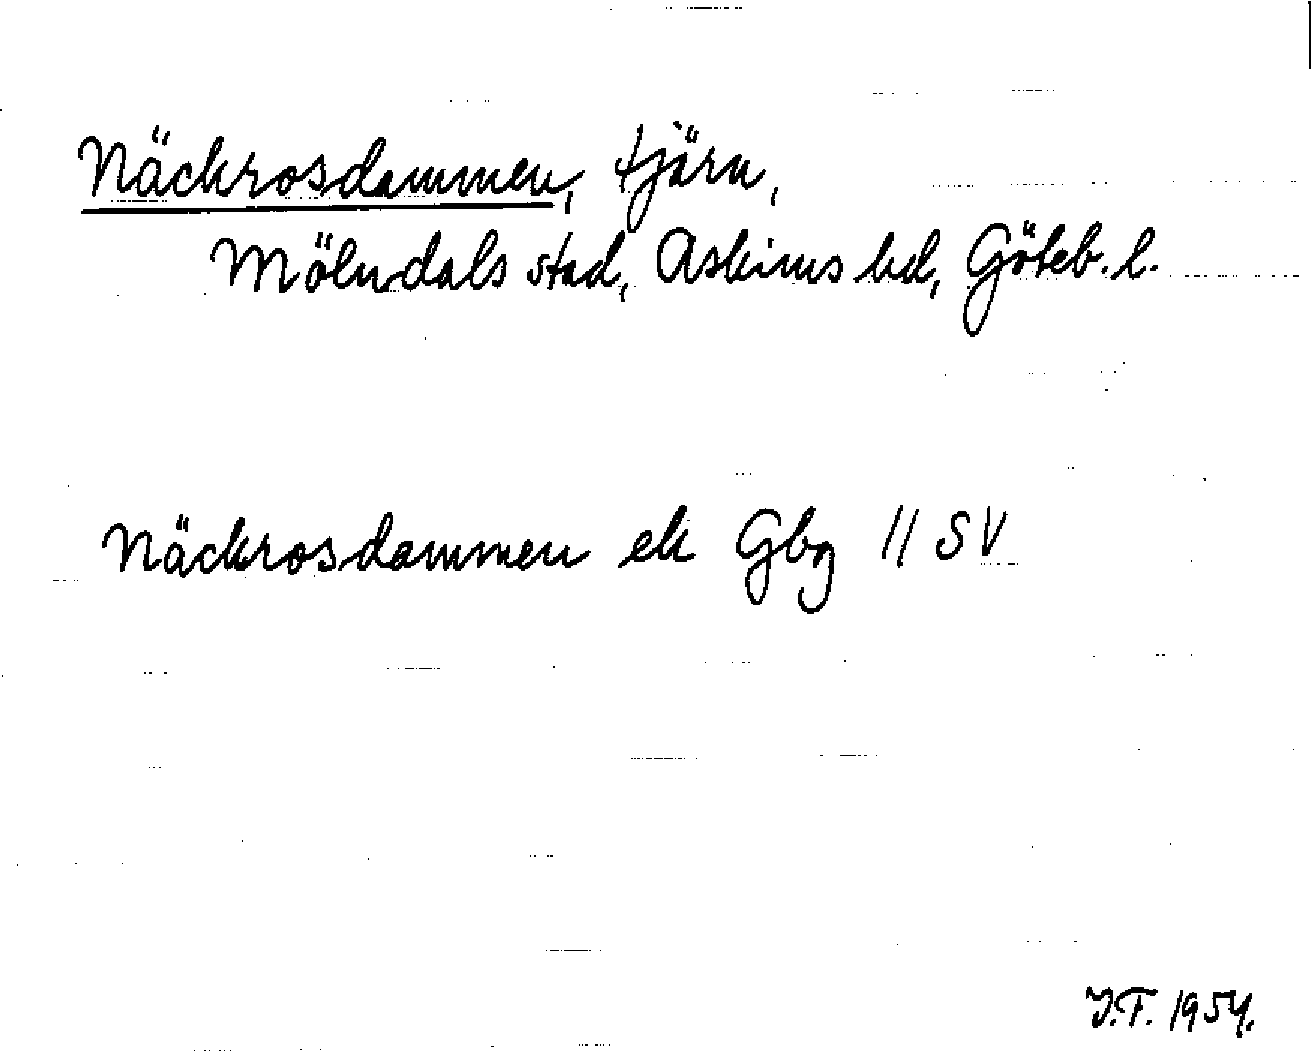 Näckrosdammen, tjärn,
Mölndals stad, Askims hd, Göteb. l.
Näckrosdammen ek Gbg 11 SV
I.F. 1954.